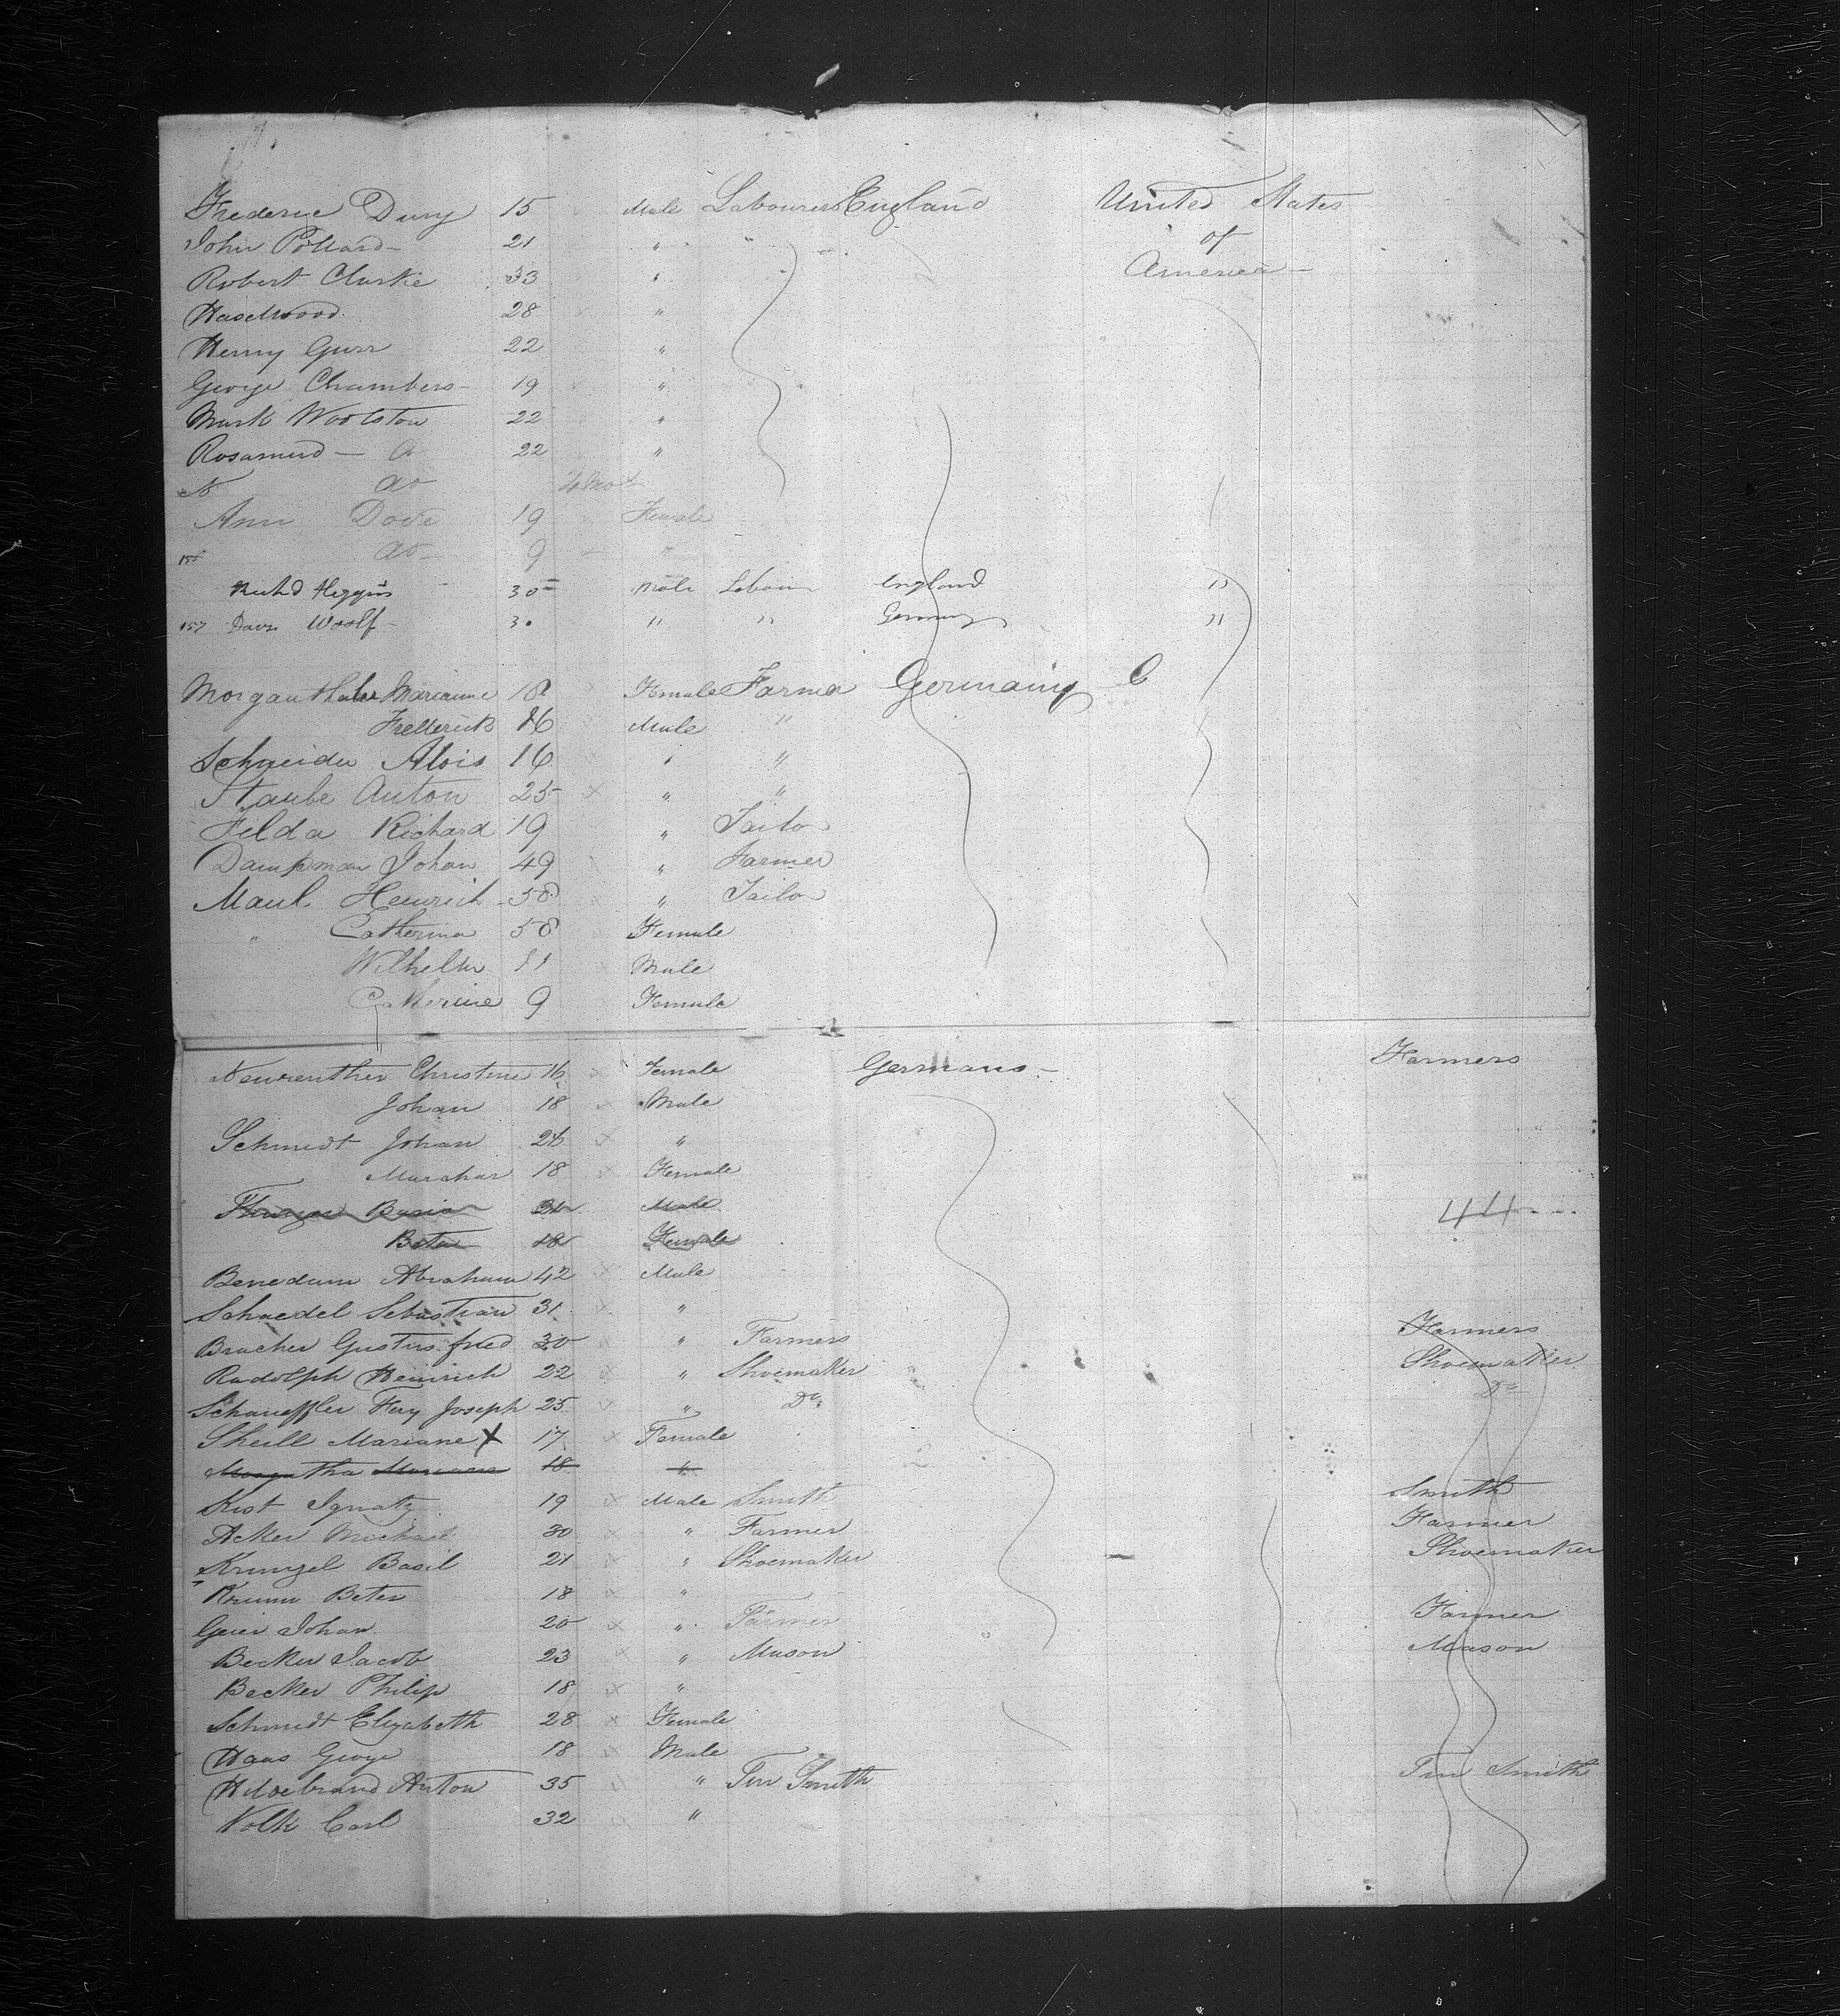 Frederic Dury 15 Male Labourers England United States
John Pollard - 21 " of
Robert Clarke 33 " America -
Haselwood 28 "
Henry Gurr 22 "
George Chambers - 19 "
Mark Woolston 22 "
Rosamund - 22 "
do
Ann Dove 19 Female
do - 9 "
Richd Higgins 30 Male Labour England "
157 Woolf - 30 " " Germany "
Morganthaler Marianne 18 Female Farmer Germainy
Frederick 16 Male "
Schneider Alois 16 " "
Staube Anton 25 x " "
Filda Richard 19 " Tailor
Dampman Johan 49 " Farmer
Maul Heinrich 58 " Tailor
" Catherina 58 Female
Wilhelm 11 Male
Catherine 9 Female
Neureuther Christine 16 x Female Germans - Farmers
Johan 18 Male
Schmidt Johan 26 x "
18 x Female
Male 44
18 Female
Benedum Abraham 42 x Male
Schaedel Sebastian 31 "
Bracher Gustus fried 30 " Farmers Farmers
Rudolph Heinrich 22 " Shoemaker Shoemaker
Schaueffler Joseph 25 " Do Do
Sheill Mariane X 17 x Female
18 "
Kist Ignatz 19 x Male Smith Smith
Acker Michael 30 x " Farmer Farmer
Krunzel Basil 21 x " Shoemaker Shoemaker
Krumm Beter 18 x "
Geier Johan 20 x " Farmer Farmer
Becker Jacob 23 x " Mason Mason
Becker Philip 18 x "
Schmidt Elizabeth 28 x Female
Haas George 18 x Male
Hildebrand Anton 35 " Tin Smith Tin Smith
Volk Carl 32 "